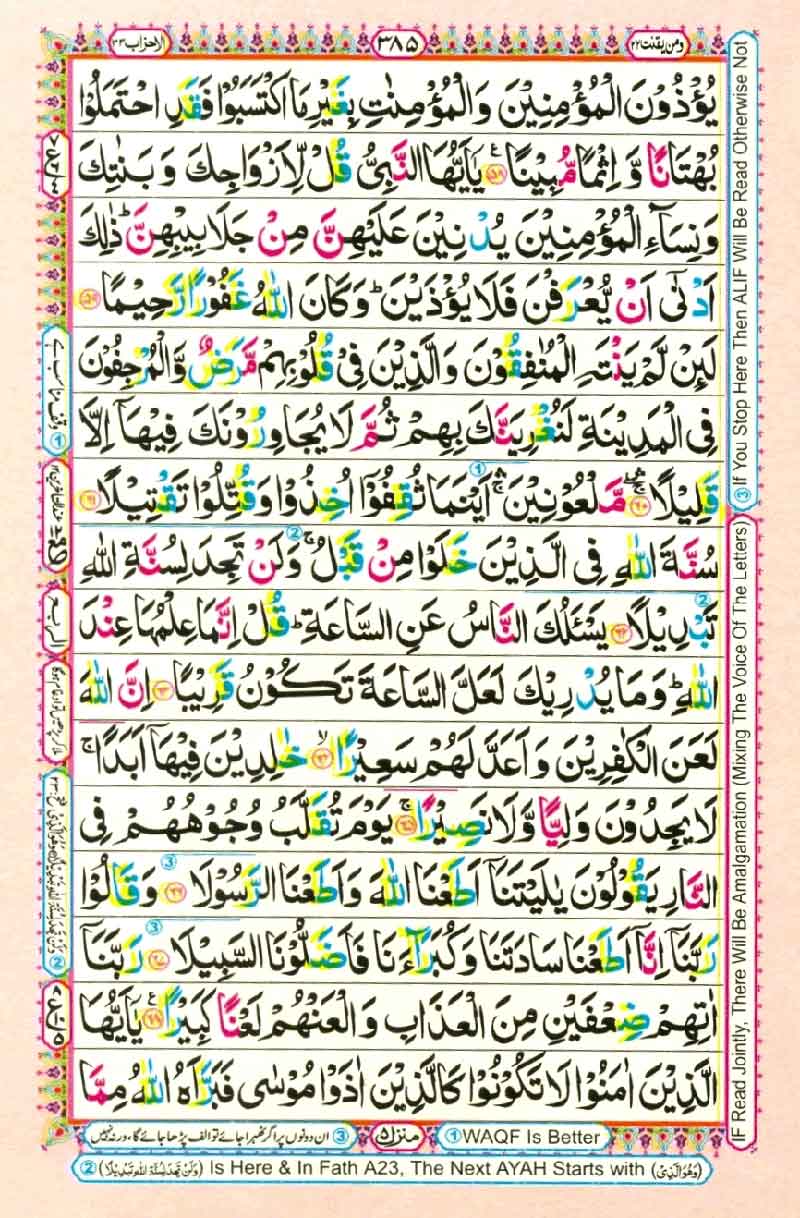 ومن يقنت ٢٢
٣٨٥
الاحزاب ٣٣
يُؤْذُوْنَ الْمُؤْمِنِيْنَ وَالْمُؤْمِنٰتِ بِغَيْرِ مَا اكْتَسَبُوْا فَقَدِ احْتَمَلُوْا
بُهْتَانًا وَّ اِثْمًا مُّبِيْنًا ۝٥٨ يٰۤاَيُّهَا النَّبِىُّ قُلْ لِّاَزْوَاجِكَ وَ بَنٰتِكَ
وَ نِسَآءِ الْمُؤْمِنِيْنَ يُدْنِيْنَ عَلَيْهِنَّ مِنْ جَلَابِيْبِهِنَّ ؕ ذٰلِكَ
اَدْنٰۤى اَنْ يُّعْرَفْنَ فَلَا يُؤْذَيْنَ ؕ وَ كَانَ اللّٰهُ غَفُوْرًا رَّحِيْمًا ۝٥٩
لَئِنْ لَّمْ يَنْتَهِ الْمُنٰفِقُوْنَ وَالَّذِيْنَ فِىْ قُلُوْبِهِمْ مَّرَضٌ وَّالْمُرْجِفُوْنَ
فِى الْمَدِيْنَةِ لَنُغْرِيَنَّكَ بِهِمْ ثُمَّ لَا يُجَاوِرُوْنَكَ فِيْهَاۤ اِلَّا
قَلِيْلًا ۝٦٠ مَّلْعُوْنِيْنَ ۛۚ اَيْنَمَا ثُقِفُوْۤا اُخِذُوْا وَقُتِّلُوْا تَقْتِيْلًا ۝٦١
سُنَّةَ اللّٰهِ فِى الَّذِيْنَ خَلَوْا مِنْ قَبْلُ ۚ وَ لَنْ تَجِدَ لِسُنَّةِ اللّٰهِ
تَبْدِيْلًا ۝٦٢ يَسْئَلُكَ النَّاسُ عَنِ السَّاعَةِ ؕ قُلْ اِنَّمَا عِلْمُهَا عِنْدَ
اللّٰهِ ؕ وَ مَا يُدْرِيْكَ لَعَلَّ السَّاعَةَ تَكُوْنُ قَرِيْبًا ۝٦٣ اِنَّ اللّٰهَ
لَعَنَ الْكٰفِرِيْنَ وَ اَعَدَّ لَهُمْ سَعِيْرًا ۝٦٤ خٰلِدِيْنَ فِيْهَاۤ اَبَدًا ۚ
لَا يَجِدُوْنَ وَلِيًّا وَّلَا نَصِيْرًا ۝٦٥ يَوْمَ تُقَلَّبُ وُجُوْهُهُمْ فِى
النَّارِ يَقُوْلُوْنَ يٰلَيْتَنَاۤ اَطَعْنَا اللّٰهَ وَ اَطَعْنَا الرَّسُوْلَا ۝٦٦ وَ قَالُوْا
رَبَّنَاۤ اِنَّاۤ اَطَعْنَا سَادَتَنَا وَ كُبَرَآءَنَا فَاَضَلُّوْنَا السَّبِيْلَا ۝٦٧ رَبَّنَاۤ
اٰتِهِمْ ضِعْفَيْنِ مِنَ الْعَذَابِ وَ الْعَنْهُمْ لَعْنًا كَبِيْرًا ۝٦٨ يٰۤاَيُّهَا
الَّذِيْنَ اٰمَنُوْا لَا تَكُوْنُوْا كَالَّذِيْنَ اٰذَوْا مُوْسٰى فَبَرَّاَهُ اللّٰهُ مِمَّا
① WAQF Is Better
منزل ٥
③ ان دونوں پر اگر ٹھہرا جائے تو الف پڑھا جائے گا، ورنہ نہیں
② (وَلَنْ تَجِدَ لِسُنَّةِ اللّٰهِ تَبْدِيْلًا) Is Here & In Fath A23, The Next AYAH Starts with (وَهُوَ الَّذِىْ)
③ If You Stop Here Then ALIF Will Be Read Otherwise Not
IF Read Jointly, There Will Be Amalgamation (Mixing The Voice Of The Letters)